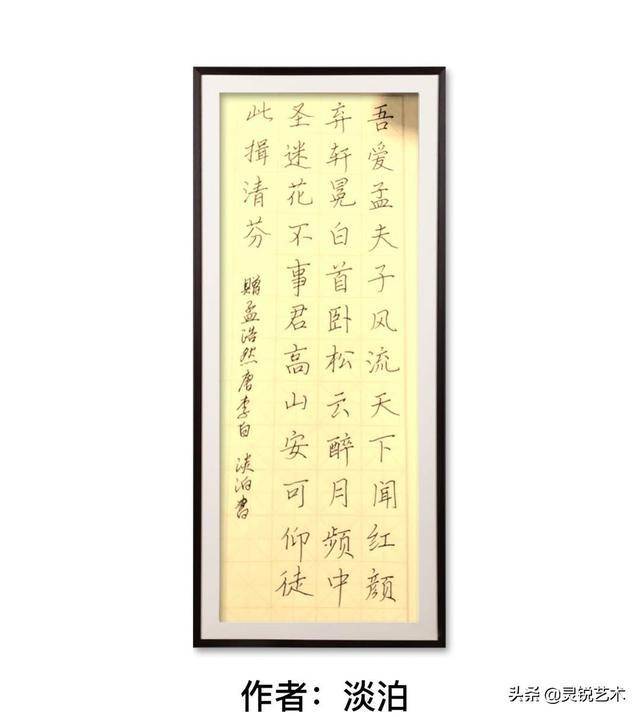 吾爱孟夫子风流天下闻红颜
弃轩冕白首卧松云醉月频中
圣迷花不事君高山安可仰徒
此揖清芬 赠孟浩然唐李白 淡泊书
作者：淡泊
头条@灵锐艺术